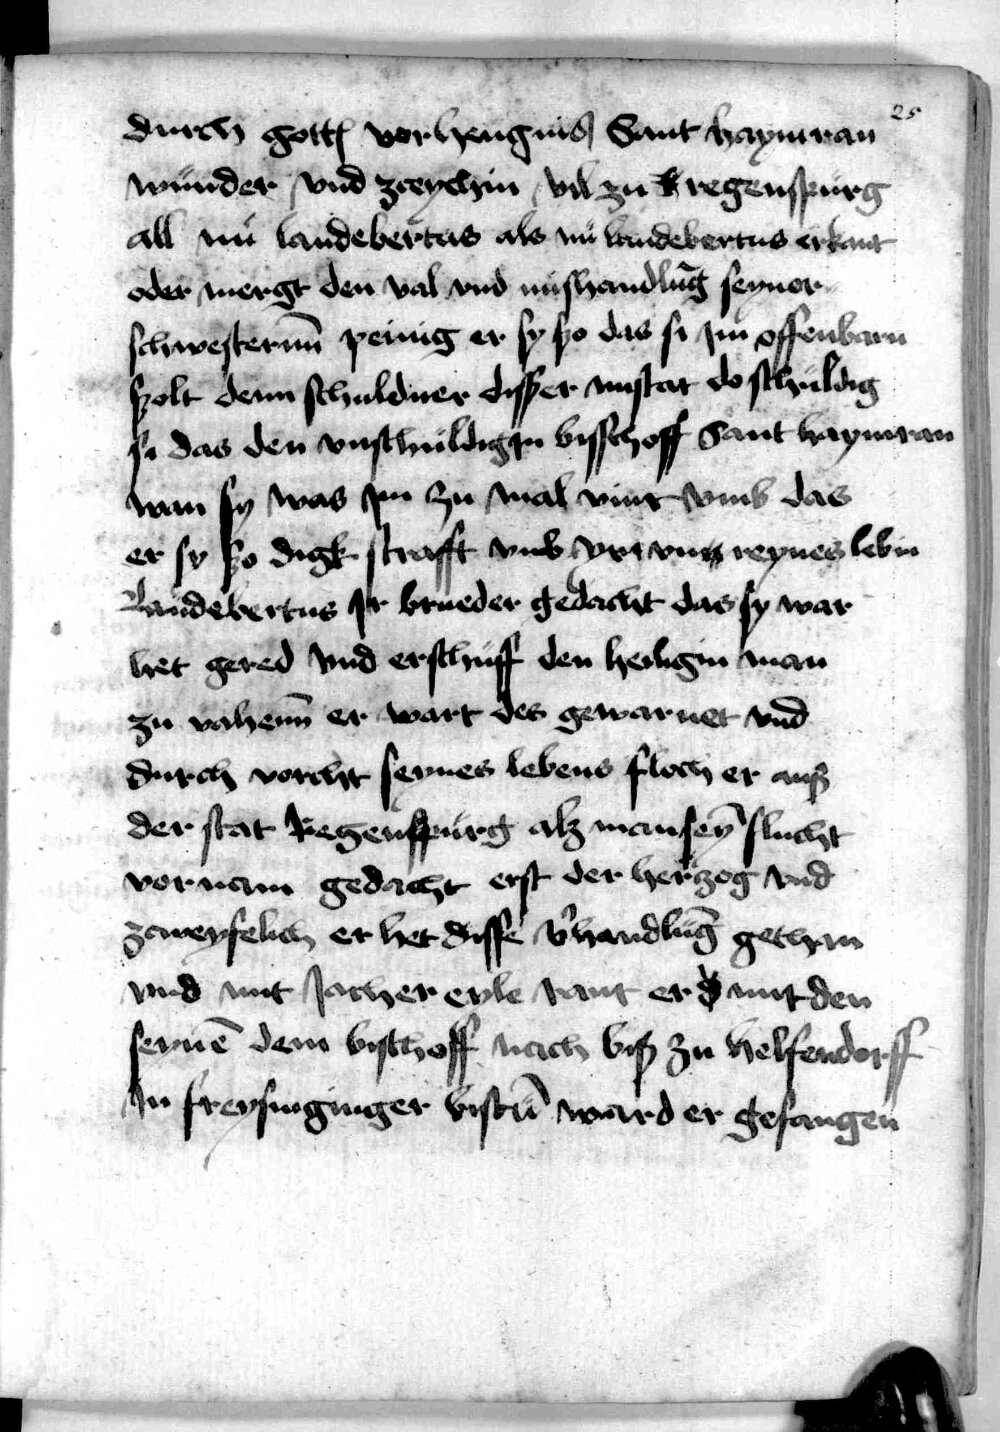 25
durch gottſ vorhengniſ Sant haymran
wunder vnd zceychin vil zu regenſpurg
all nu landebertus als nu landebertus erkant
oder mergt den val vnd miſhandlūg ſeyner
ſchweſterinn peinig er ſy ſzo das ſi im offenbarn
ſzolt denn ſchuldner diſſer miſtat do ſchuldig
ſi das den vnſchuldigin biſſchoff Sant haymran
wan ſy was im zu mal vint vmb das
er ſy ſzo digk ſtrafft vmb yr vnreynes lebin
Landebertus ir brueder gedacht das ſy war
het gered vnd erſchuff den heiligin man
zu vahenn er wart des gewarnet vnd
durch vorcht ſeynes lebens floch er auſz
der ſtat Regenſpurg alz man ſeȳ flucht
vornam gedacht erſt der herzog vnd
zcweyfelich er het diſſe v'handlūg gethan
vnd mit jacher eyle rant er mit den
ſeynē dem biſchoff nach biſz zu helfendorff
In freyſinginger biſtū ward er gefangen